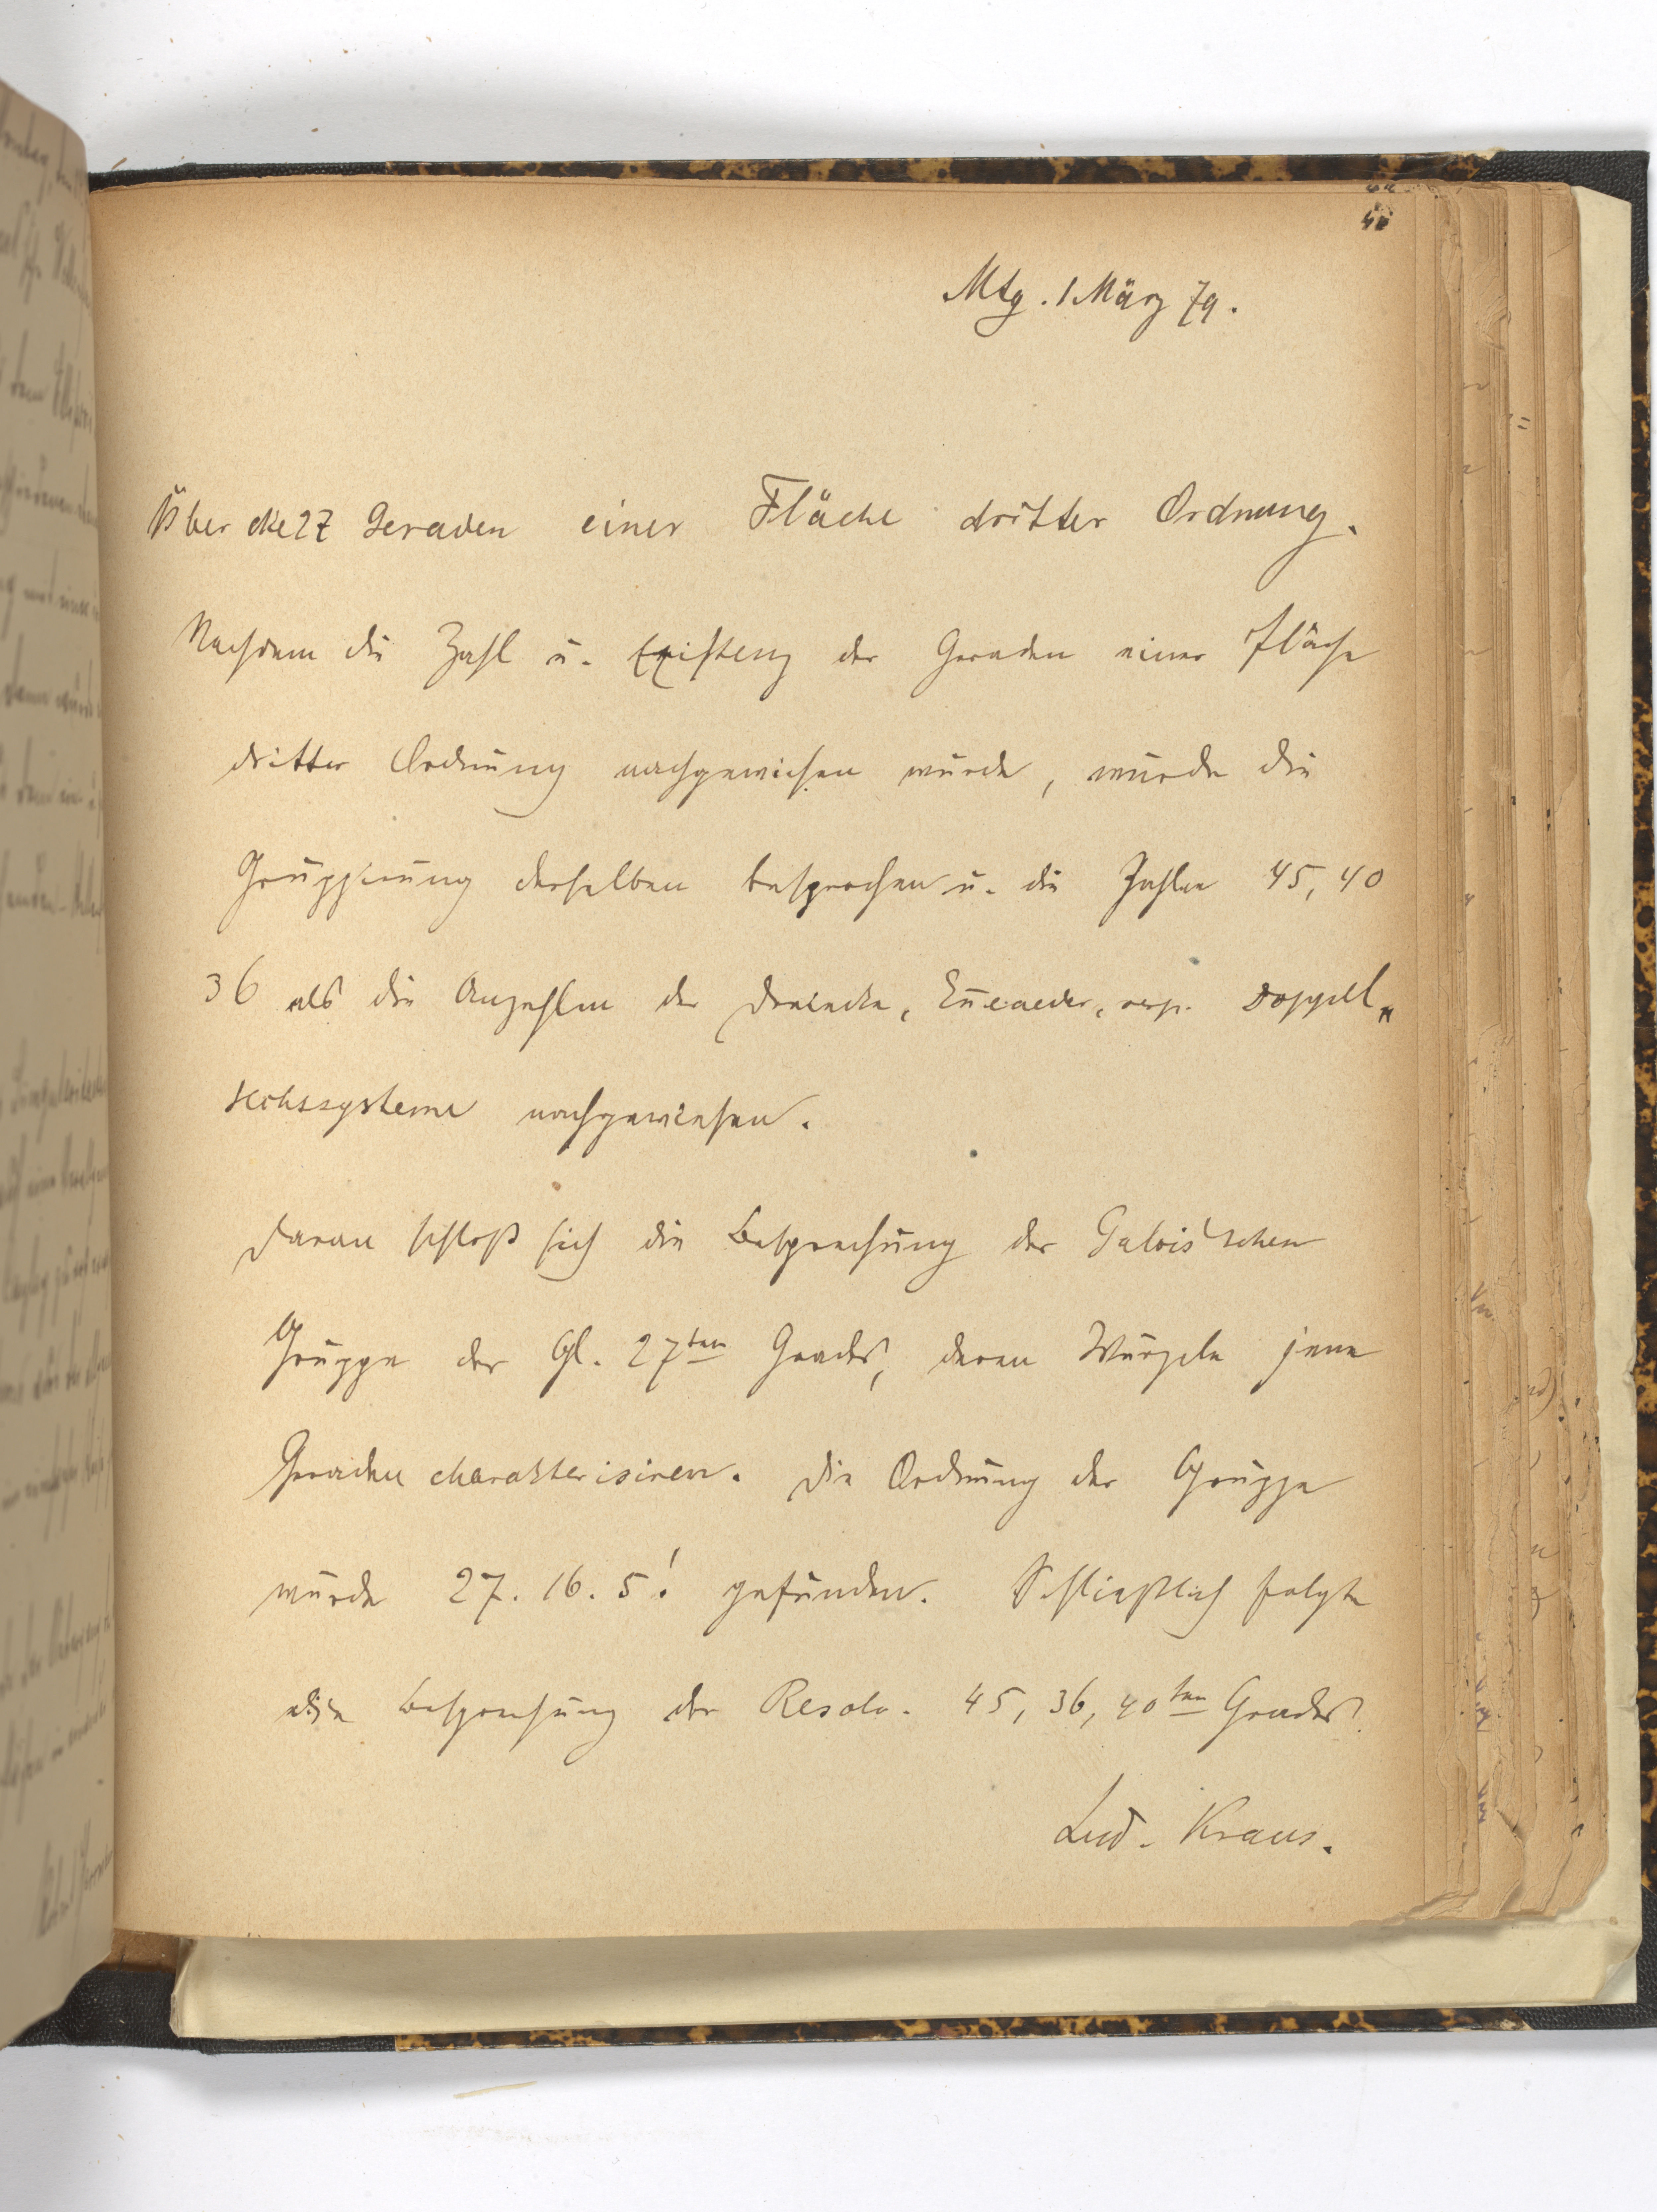 Mtg. 1 März 79.
Über die 27 Geraden einer Fläche dritter Ordnung.
Nachdem die Zahl u. Existenz der Geraden einer Fläche
dritter Ordnung nachgewiesen wurde, wurde die
Gruppirung derselben besprochen u. die Zahlen 45, 40
36 als die Anzahlen der Dreiecke, Eneaeder, resp. Doppel„
sechssysteme nachgewiesen.
Daran schloß sich die Besprechung der Galois'schen
Gruppe der Gl. 27ten Grades, deren Wurzeln jene
Geraden charakterisiren. Die Ordnung der Gruppe
wurde 27. 16. 5! gefunden. Schließlich folgte
die Besprechung der Resolv. 45, 36, 40ten Grades.
Lud. Kraus.